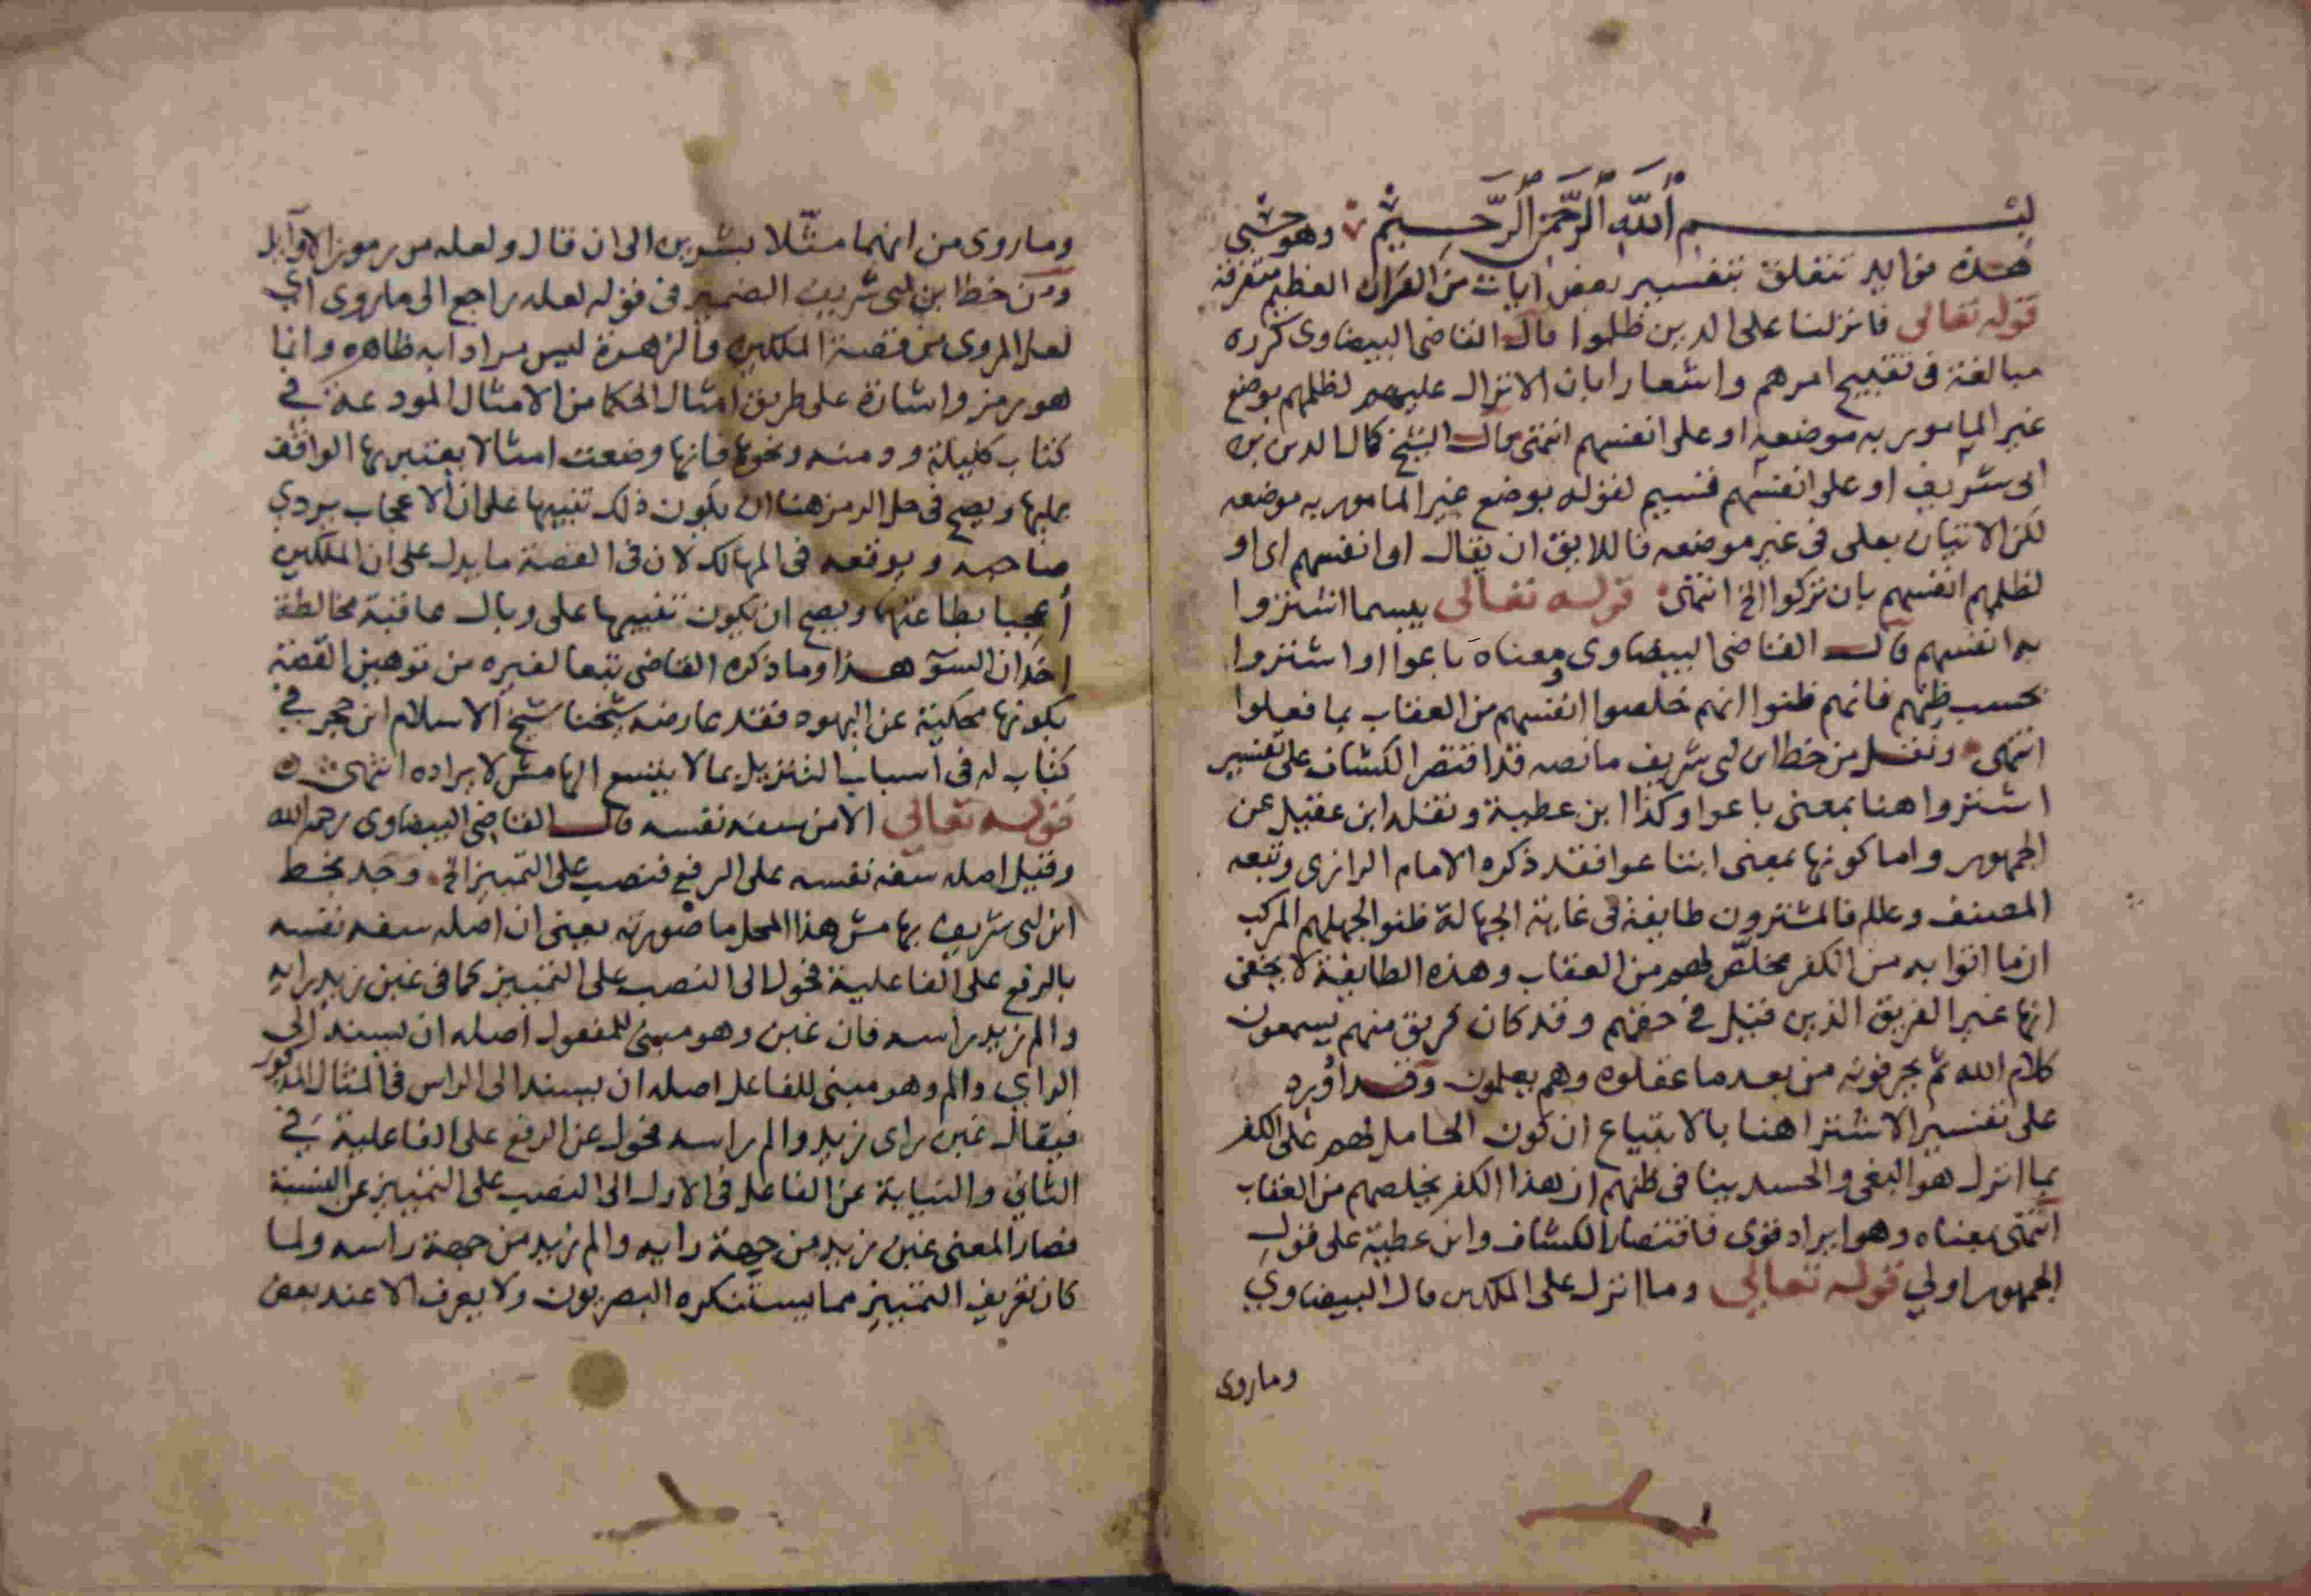 بسم الله الرحمن الرحيم وهو حسبي
هذه فوايد تتعلق بتفسير بعض ايات من القران العظيم متفرقة
قوله تعالى فانزلنا على الذين ظلموا قال القاضي البيضاوى كرره
مبالغة فى تقبيح امرهم واشعارا بان الانزال عليهم لظلمهم بوضع
غير المامور به موضعه او على انفسهم انتهى قال الشيخ كمال الدين بن
ابى شريف او على انفسهم قسيم لقوله بوضع غير المامور به موضعه
لكن الاتيان بعلى فى غير موضعه فاللايق ان يقال او انفسهم اى او
لظلمهم انفسهم بان تركوا الخ انتهى قوله تعالى بيسما اشتروا
به انفسهم قال القاضى البيضاوى ومعناه باعوا او اشتروا
بحسب ظنهم فانهم ظنوا انهم خلصوا انفسهم من العقاب بما فعلوا
انتهى ونقل من خط ابن ابى شريف ما نصه قد اقتصر الكشاف على تفسير
اشتروا هنا بمعنى باعوا وكذا ابن عطية ونقله ابن عقيل عن
الجمهور واما كونها بمعنى ابتاعوا فقد ذكره الامام الرازى وتبعه
المصنف وعلله فالمشترون طايفة فى غاية الجهالة ظنوا لجهلهم المركب
ان ما اتوا به من الكفر مخلّص لهم من العقاب وهذه الطايفة لا يخفى
انها غير الفريق الذين قيل في حقهم وقد كان فريق منهم يسمعون
كلام الله ثم يحرفونه من بعد ما عقلوه وهم يعلمون وقد اُورد
على تفسير الاشترا هنا بالابتياع ان كون الحامل لهم على الكفر
بما انزل هو البغى والحسد ينافى ظنهم ان هذا الكفر يخلصهم من العقاب
انتهى بمعناه وهو ايراد قوى فاقتصار الكشاف وابن عطية على قول
الجمهور اولي قوله تعالى وما انزل على الملكين قال البيضاوي
وماروى
وماروى من انهما مثّلا بشرين الى ان قال ولعله من رموز الاوآيل
ومن خط ابن ابى شريف الضمير فى قوله لعله راجع الى ماروى اي
لعل المروى من قصة الملكين والزهرة ليس مرادا به ظاهره وانما
هو رمز واشارة على طريق امثال الحكما من الامثال المودعة في
كتاب كليلة ودمنه ونحوها فانها وضعت امثالا يعتبر بها الواقف
عليها ويصح فى حل الرمز هنا ان يكون ذلك تنبيها على ان الاعجاب يردي
صاحبه ويوقعه فى المهالك لان فى القصة ما يدل على ان الملكين
أُعجبا بطاعتهما ويصح ان يكون تنبيها على وبال عاقبة مخالطة
اخدان السوٓ هذا وما ذكره القاضى تبعا لغيره من توهين القصة
بكونها محكية عن اليهود فقد عارضه شيخنا شيخ الاسلام ابن حجر في
كتاب له فى اسباب التنزيل بما لا يتسع الهامش لايراده انتهى
قوله تعالي الا من سفه نفسه قال القاضى البيضاوى رحمه الله
وقيل اصله سفه نفسه على الرفع فنصب على التمييز الخ وجد بخط
ابن ابى شريف بهامش هذا المحل ما صورته يعنى ان اصله سفه نفسه
بالرفع على الفاعلية فحول الى النصب على التمييز كما فى غبن زيد رايه
والم زيد راسه فان غبن وهو مبنى للمفعول اصله ان يسند الى
الراي والم وهو مبنى للفاعل اصله ان يسند الى الراس فى المثال المذكور
فيقال غبن راى زيد والم راسه فحول عن الرفع على الفاعلية في
الثاني والنيابة عن الفاعل فى الاول الى النصب على التمييز عن النسبة
فصار المعنى غبن زيد من جهة رايه والم زيد من جهة راسه ولما
كان تعريف التمييز مما يستنكره البصريون ولا يعرف الا عند بعض